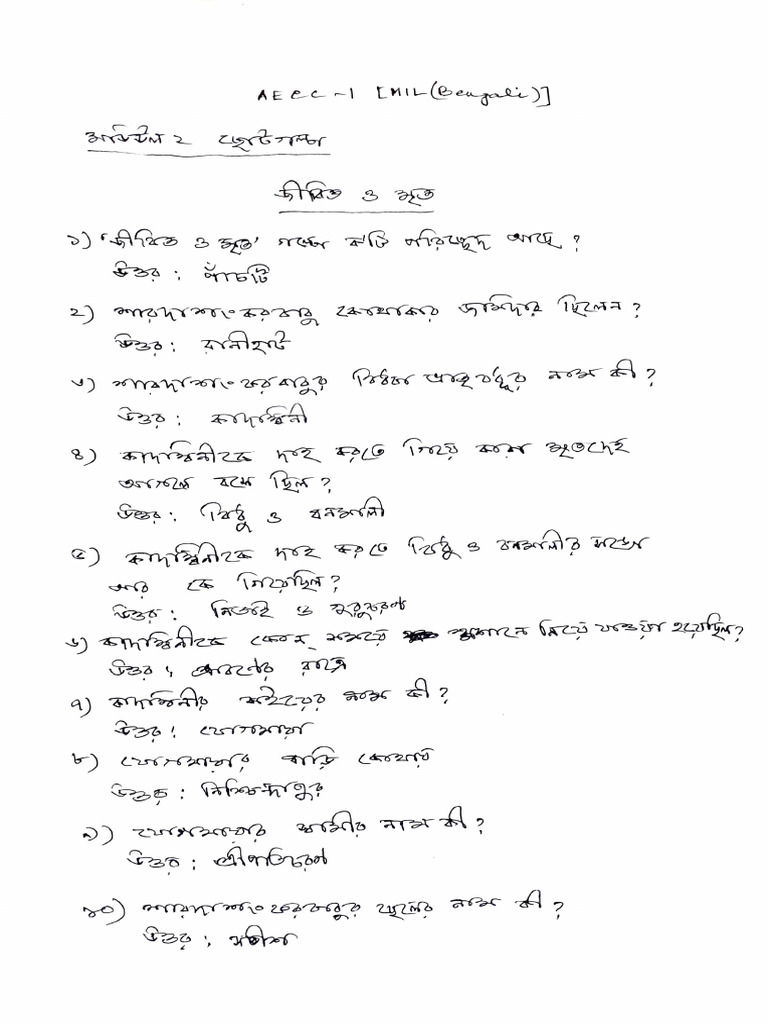 AECC-1 [MIL(Bengali)]
মডিউল ২ ছোটগল্প
জীবিত ও মৃত
১) 'জীবিত ও মৃত' গল্পে ক'টি পরিচ্ছেদ আছে ?
উত্তর : পাঁচটি
২) শারদাশংকরবাবু কোথাকার জমিদার ছিলেন ?
উত্তর : রানীহাট
৩) শারদাশংকরবাবুর বিধবা ভ্রাতৃবধূর নাম কী ?
উত্তর : কাদম্বিনী
৪) কাদম্বিনীকে দাহ করতে গিয়ে কারা মৃতদেহ
আগলে বসে ছিল ?
উত্তর : বিধু ও বনমালী
৫) কাদম্বিনীকে দাহ করতে বিধু ও বনমালীর সঙ্গে
আর কে গিয়েছিল ?
উত্তর : নিতাই ও গুরুচরণ
৬) কাদম্বিনীকে কোন সময়ে শ্মশানে নিয়ে যাওয়া হয়েছিল ?
উত্তর : শ্রাবণের রাত্রে
৭) কাদম্বিনীর সইয়ের নাম কী ?
উত্তর : যোগমায়া
৮) যোগমায়ার বাড়ি কোথায়
উত্তর : নিশিন্দাপুর
৯) যোগমায়ার স্বামীর নাম কী ?
উত্তর : শ্রীপতিচরণ
১০) শারদাশংকরবাবুর ছেলের নাম কী ?
উত্তর : সতীশ